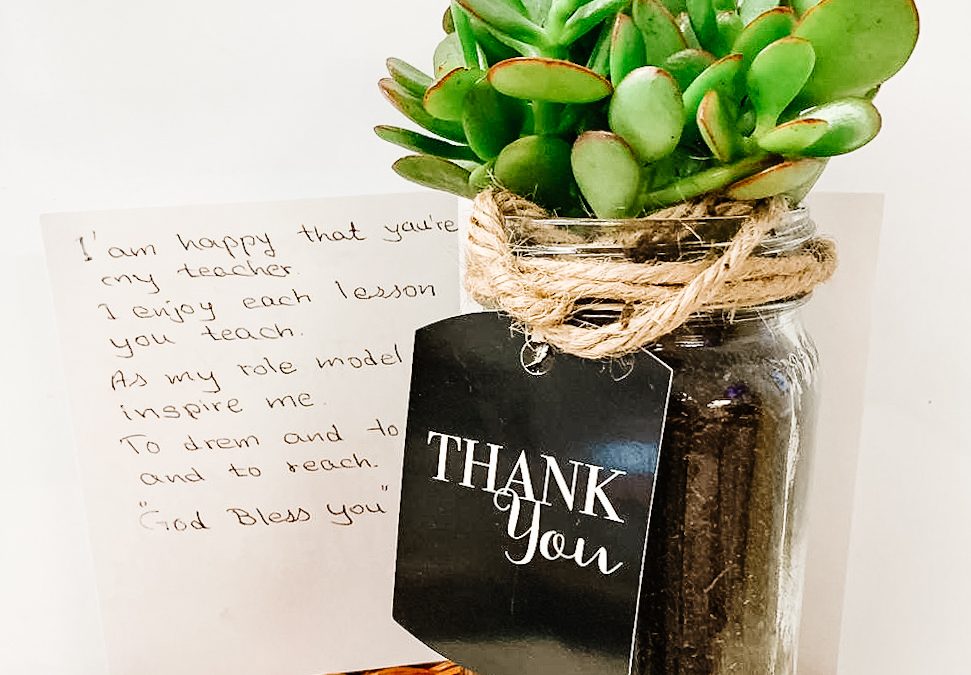 I'am happy that you're
my teacher.
I enjoy each lesson
you teach.
As my role model
inspire me.
To drem and to
and to reach.
"God Bless You"
THANK
You